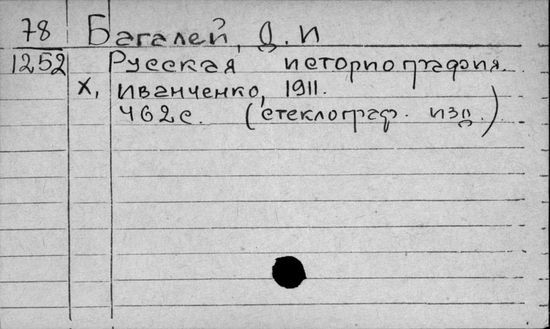 78 Багалей, Д. И
1252 Русская историография.
Х, Иванченко, 1911.
462 с. (стеклограф. изд)